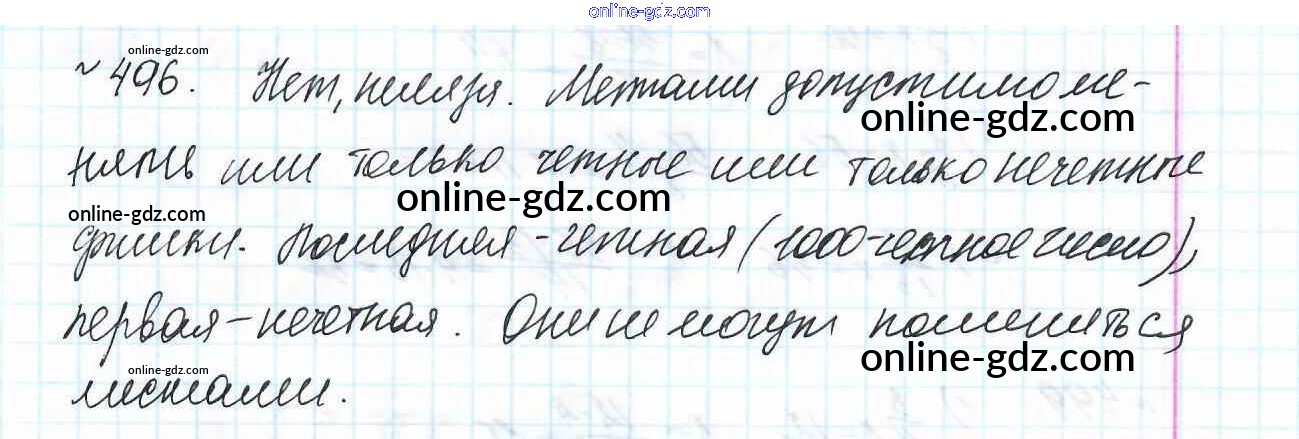 online-gdz.com
online-gdz.com
№ 496. Нет, нельзя. Местами допустимо ме-
online-gdz.com
нять или только четные или только нечетные
online-gdz.com
online-gdz.com
фишки. Последняя - четная (1000-четное число),
первая - нечетная. Они не могут поменяться
online-gdz.com
online-gdz.com
местами.